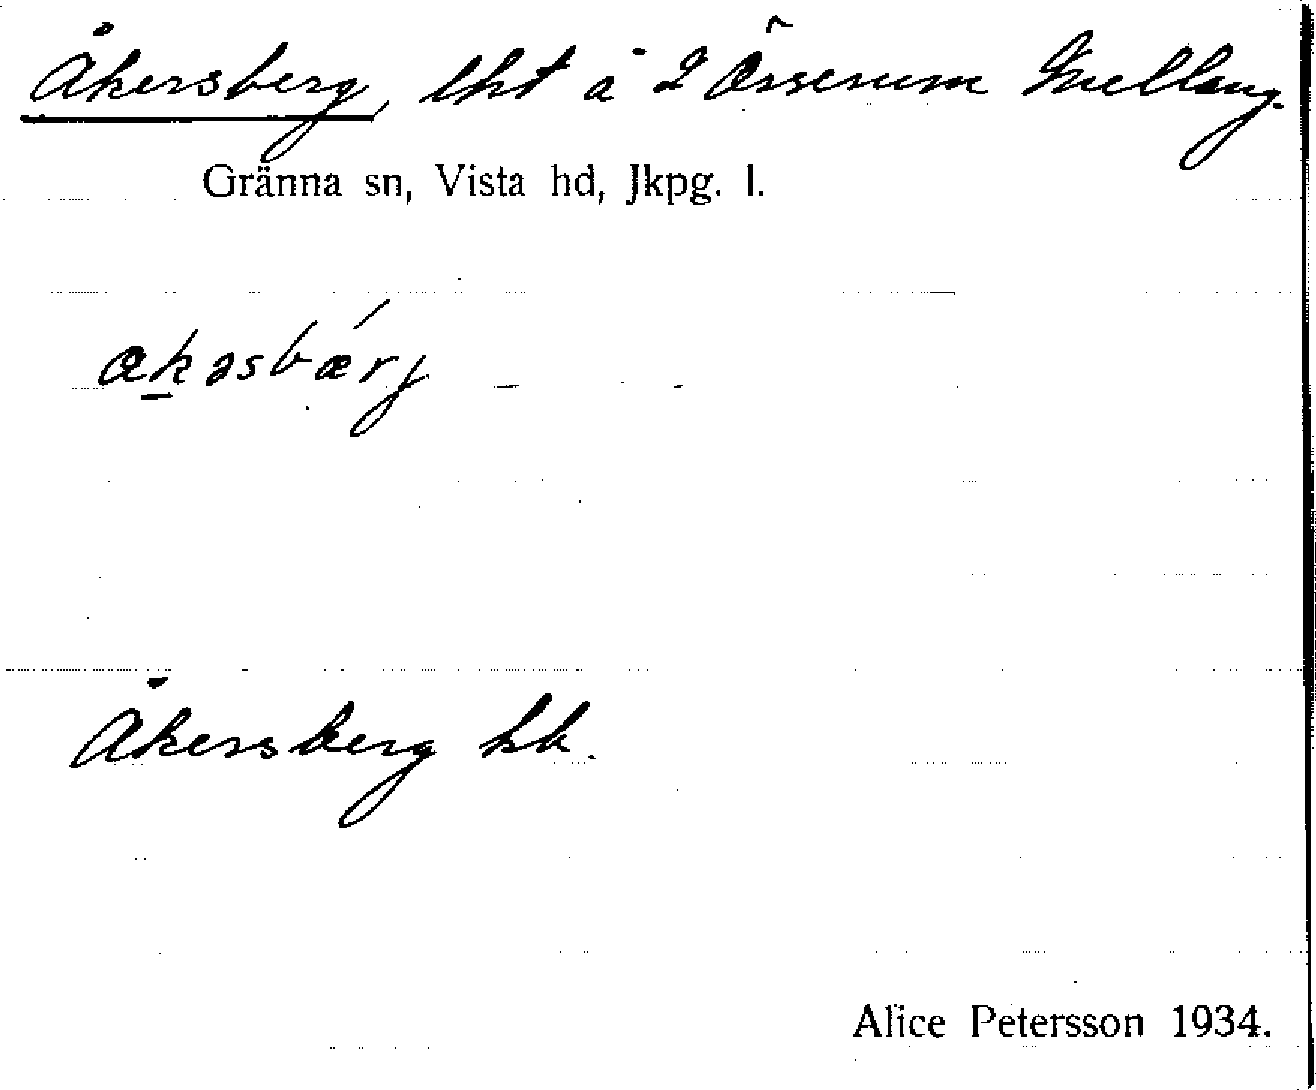 Åkersberg, lht å 2 Össerum Mellang.
Gränna sn, Vista hd, Jkpg. l.
akəsbærj
Åkersberg kb.
Alice Petersson 1934.